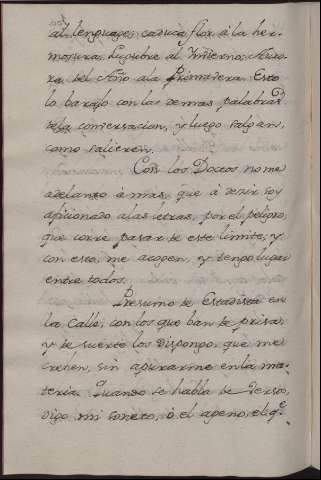 al lenguages, caduca flor á la her-
mosura, Lugubre al Ymbierno, Auro-
ra del Año ala Primavera. Esto
lo barajo con las demas palabras
de la conversacion, y luego salgan,
como salieren.
Con los Doctos no me
adelanto á mas, que á decir soy
aficionado alas letras, por el peligro,
que corre pasar de este limite, y
con esto, me acogen, y tengo lugar
entre todos.
Presumo de Estadista en
la Calle, con los que ban de prisa,
y de suerte los dispongo, que me
crehen, sin apurarme en la ma-
teria. Quando se habla de Versos,
digo mi soneto, ó el ageno, el q.e